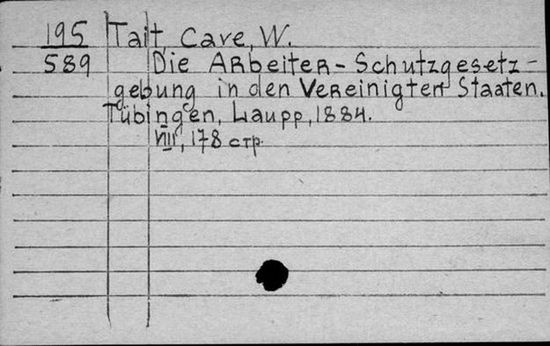 195 Tait, Cave, W.
589 Die Arbeiter-Schutzgesetz-
gebung in den Vereinigten Staaten.
Tübingen, Laupp, 1884.
VIII, 178 стр.